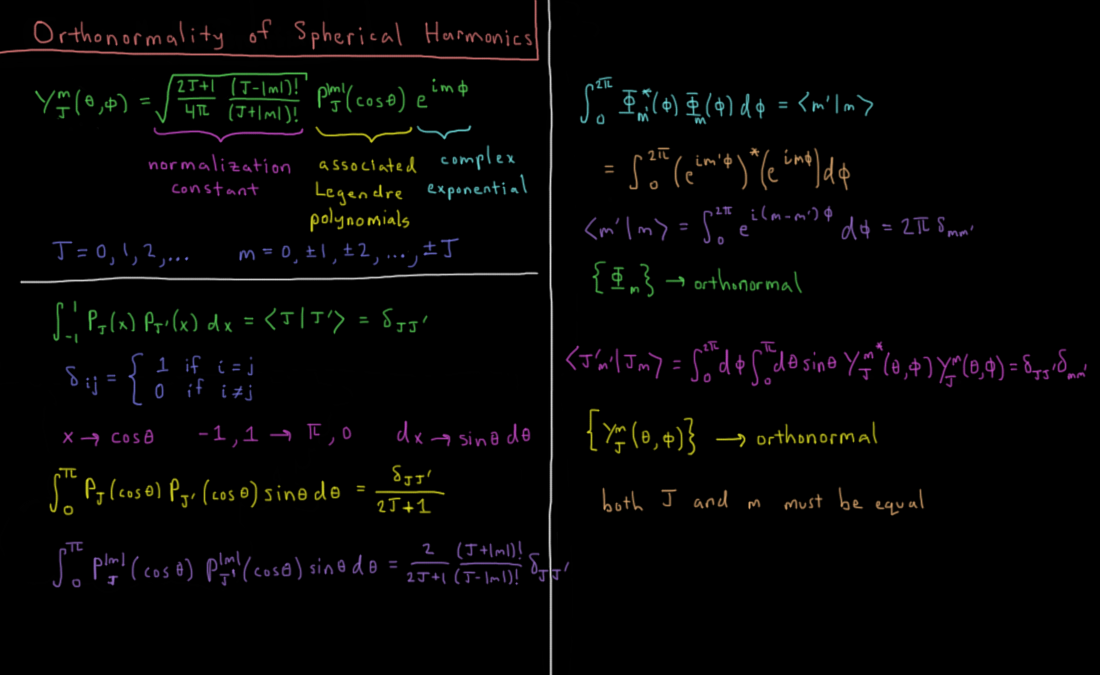 Orthonormality of Spherical Harmonics
Y_J^m(θ,φ) = √((2J+1)/(4π) (J-|m|)!/(J+|m|)!) P_J^|m|(cosθ) e^{imφ}
normalization constant
associated Legendre polynomials
complex exponential
J = 0, 1, 2, ...   m = 0, ±1, ±2, ..., ±J
∫_{-1}^{1} P_J(x) P_J'(x) dx = ⟨J|J'⟩ = δ_JJ'
δ_ij = { 1 if i=j
0 if i≠j
x → cosθ   -1, 1 → π, 0   dx → sinθ dθ
∫_0^π P_J(cosθ) P_J'(cosθ) sinθ dθ = δ_JJ'/(2J+1)
∫_0^π P_J^|m|(cosθ) P_J'^|m|(cosθ) sinθ dθ = 2/(2J+1) (J+|m|)!/(J-|m|)! δ_JJ'
∫_0^{2π} Φ_m'^*(φ) Φ_m(φ) dφ = ⟨m'|m⟩
= ∫_0^{2π} (e^{im'φ})^* (e^{imφ}) dφ
⟨m'|m⟩ = ∫_0^{2π} e^{i(m-m')φ} dφ = 2π δ_mm'
{Φ_m} → orthonormal
⟨J'm'|Jm⟩ = ∫_0^{2π} dφ ∫_0^π dθ sinθ Y_J^m*(θ,φ) Y_J^m(θ,φ) = δ_JJ' δ_mm'
{Y_J^m(θ,φ)} → orthonormal
both J and m must be equal